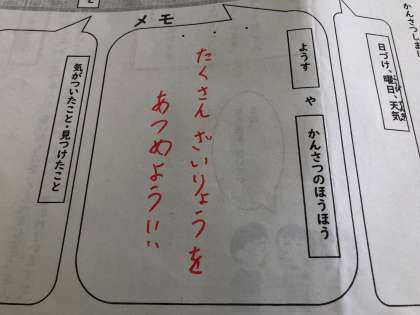 かんさつしまし
日づけ、曜日、天気
メモ
ようす
や
かんさつのほうほう
たくさん ざいりょうを
あつめよう!!
気がついたこと・見つけたこと